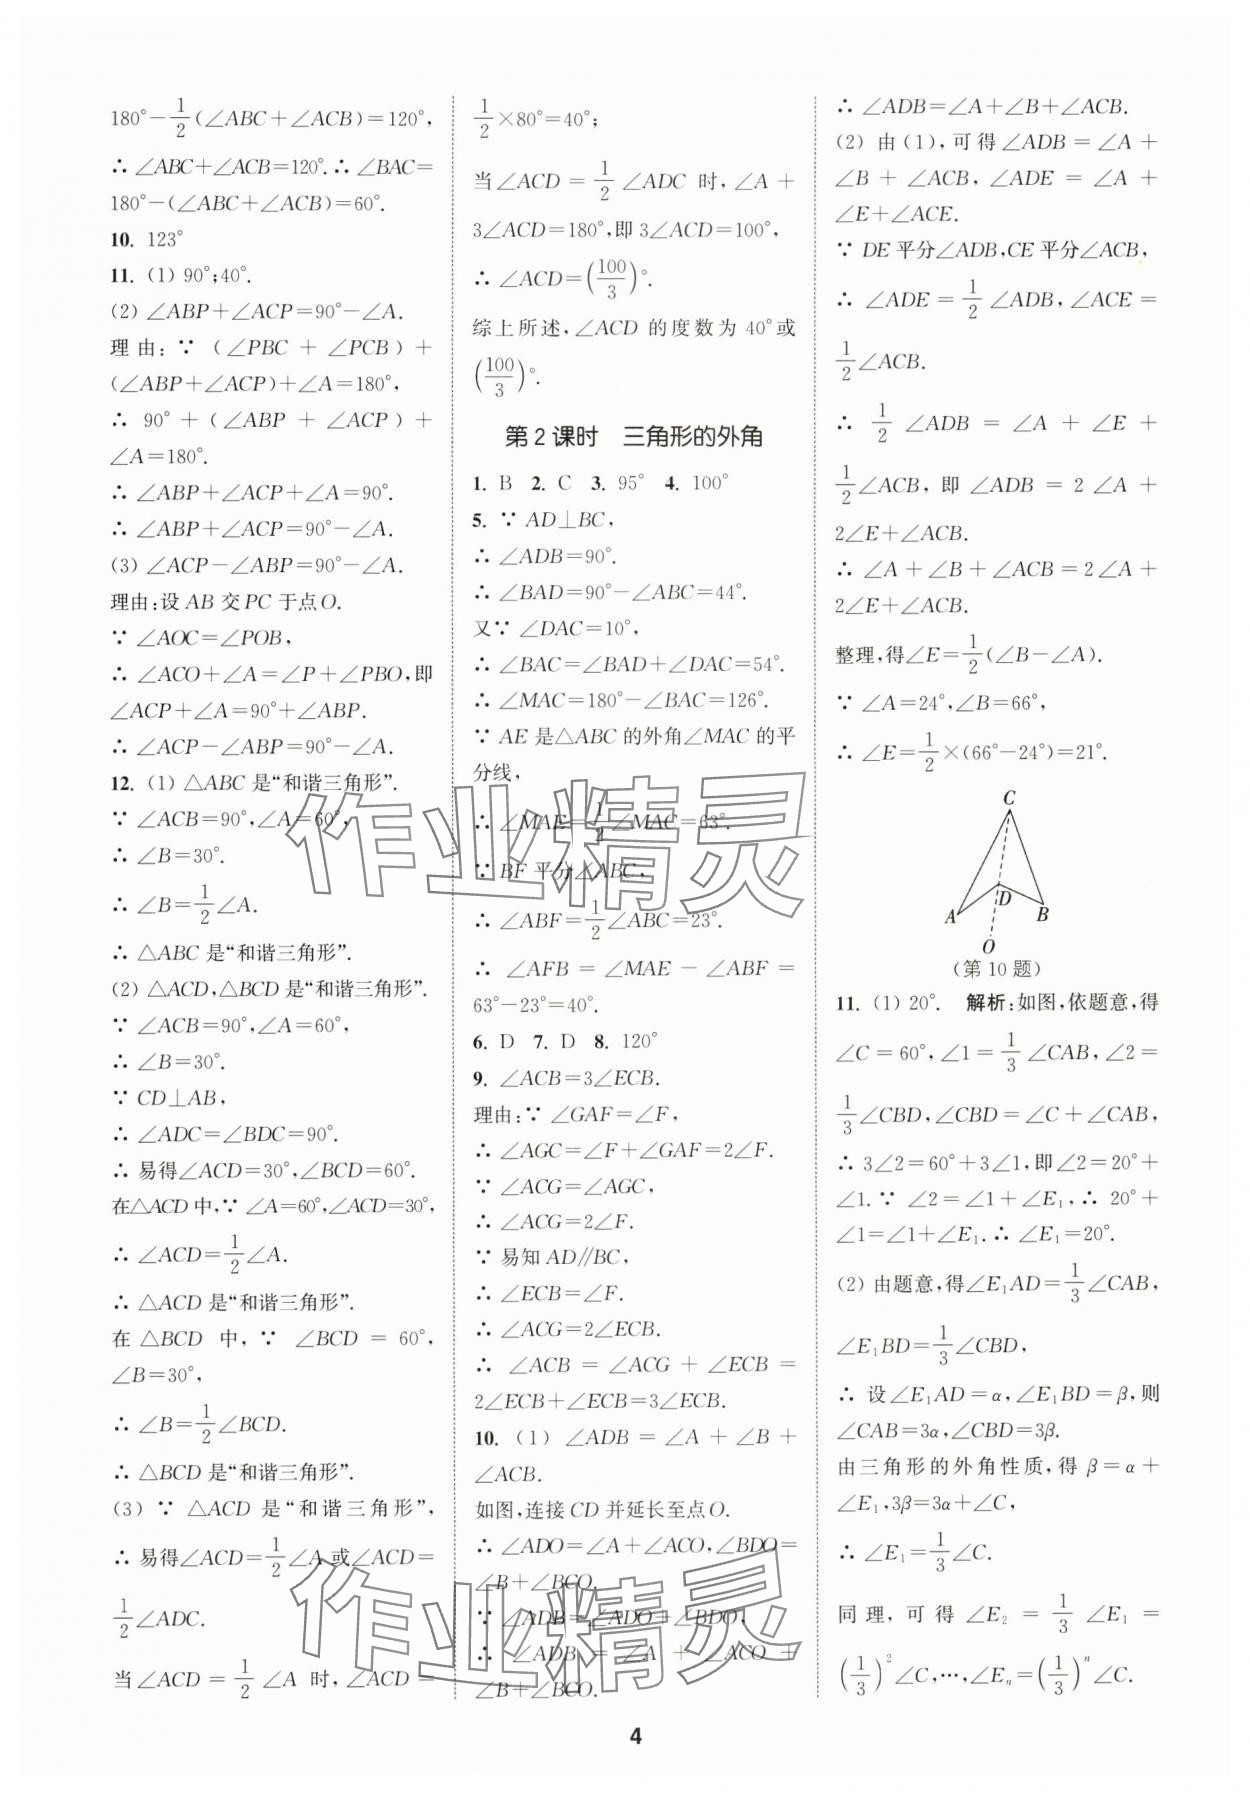 180°－1/2(∠ABC＋∠ACB)＝120°，
∴ ∠ABC＋∠ACB＝120°.∴ ∠BAC＝
180°－(∠ABC＋∠ACB)＝60°.
10. 123°
11. (1) 90°;40°.
(2) ∠ABP＋∠ACP＝90°－∠A.
理由：∵ (∠PBC＋∠PCB)＋
(∠ABP＋∠ACP)＋∠A＝180°，
∴ 90°＋(∠ABP＋∠ACP)＋
∠A＝180°.
∴ ∠ABP＋∠ACP＋∠A＝90°.
∴ ∠ABP＋∠ACP＝90°－∠A.
(3) ∠ACP－∠ABP＝90°－∠A.
理由：设 AB 交 PC 于点 O.
∵ ∠AOC＝∠POB，
∴ ∠ACO＋∠A＝∠P＋∠PBO，即
∠ACP＋∠A＝90°＋∠ABP.
∴ ∠ACP－∠ABP＝90°－∠A.
12. (1) △ABC 是“和谐三角形”.
∵ ∠ACB＝90°，∠A＝60°，
∴ ∠B＝30°.
∴ ∠B＝1/2∠A.
∴ △ABC 是“和谐三角形”.
(2) △ACD，△BCD 是“和谐三角形”.
∵ ∠ACB＝90°，∠A＝60°，
∴ ∠B＝30°.
∵ CD⊥AB，
∴ ∠ADC＝∠BDC＝90°.
∴ 易得∠ACD＝30°，∠BCD＝60°.
在△ACD 中，∵ ∠A＝60°，∠ACD＝30°，
∴ ∠ACD＝1/2∠A.
∴ △ACD 是“和谐三角形”.
在 △BCD 中，∵ ∠BCD＝60°，
∠B＝30°，
∴ ∠B＝1/2∠BCD.
∴ △BCD 是“和谐三角形”.
(3) ∵ △ACD 是“和谐三角形”，
∴ 易得∠ACD＝1/2∠A 或∠ACD＝
1/2∠ADC.
当∠ACD＝1/2∠A 时，∠ACD＝
1/2×80°＝40°；
当∠ACD＝1/2∠ADC 时，∠A＋
3∠ACD＝180°，即 3∠ACD＝100°，
∴ ∠ACD＝(100/3)°.
综上所述，∠ACD 的度数为 40°或
(100/3)°.
第 2 课时 三角形的外角
1. B 2. C 3. 95° 4. 100°
5. ∵ AD⊥BC，
∴ ∠ADB＝90°.
∴ ∠BAD＝90°－∠ABC＝44°.
又∵ ∠DAC＝10°，
∴ ∠BAC＝∠BAD＋∠DAC＝54°.
∴ ∠MAC＝180°－∠BAC＝126°.
∵ AE 是△ABC 的外角∠MAC 的平
分线，
∴ ∠MAE＝1/2∠MAC＝63°.
∵ BF 平分∠ABC，
∴ ∠ABF＝1/2∠ABC＝23°.
∴ ∠AFB＝∠MAE－∠ABF＝
63°－23°＝40°.
6. D 7. D 8. 120°
9. ∠ACB＝3∠ECB.
理由：∵ ∠GAF＝∠F，
∴ ∠AGC＝∠F＋∠GAF＝2∠F.
∵ ∠ACG＝∠AGC，
∴ ∠ACG＝2∠F.
∵ 易知 AD∥BC，
∴ ∠ECB＝∠F.
∴ ∠ACG＝2∠ECB.
∴ ∠ACB＝∠ACG＋∠ECB＝
2∠ECB＋∠ECB＝3∠ECB.
10. (1) ∠ADB＝∠A＋∠B＋
∠ACB.
如图，连接 CD 并延长至点 O.
∴ ∠ADO＝∠A＋∠ACO，∠BDO＝
∠B＋∠BCO.
∵ ∠ADB＝∠ADO＋∠BDO，
∴ ∠ADB＝∠A＋∠ACO＋
∠B＋∠BCO.
∴ ∠ADB＝∠A＋∠B＋∠ACB.
(2) 由(1)，可得∠ADB＝∠A＋
∠B＋∠ACB，∠ADE＝∠A＋
∠E＋∠ACE.
∵ DE 平分∠ADB，CE 平分∠ACB，
∴ ∠ADE＝1/2∠ADB，∠ACE＝
1/2∠ACB.
∴ 1/2∠ADB＝∠A＋∠E＋
1/2∠ACB，即∠ADB＝2∠A＋
2∠E＋∠ACB.
∴ ∠A＋∠B＋∠ACB＝2∠A＋
2∠E＋∠ACB.
整理，得∠E＝1/2(∠B－∠A).
∵ ∠A＝24°，∠B＝66°，
∴ ∠E＝1/2×(66°－24°)＝21°.
C
A D B
O
(第 10 题)
11. (1) 20°. 解析：如图，依题意，得
∠C＝60°，∠1＝1/3∠CAB，∠2＝
1/3∠CBD，∠CBD＝∠C＋∠CAB，
∴ 3∠2＝60°＋3∠1，即∠2＝20°＋
∠1.∵ ∠2＝∠1＋∠E₁，∴ 20°＋
∠1＝∠1＋∠E₁.∴ ∠E₁＝20°.
(2) 由题意，得∠E₁AD＝1/3∠CAB，
∠E₁BD＝1/3∠CBD，
∴ 设∠E₁AD＝α，∠E₁BD＝β，则
∠CAB＝3α，∠CBD＝3β.
由三角形的外角性质，得 β＝α＋
∠E₁，3β＝3α＋∠C，
∴ ∠E₁＝1/3∠C.
同理，可得∠E₂＝1/3∠E₁＝
(1/3)²∠C，…，∠Eₙ＝(1/3)ⁿ∠C.
作业精灵
作业精灵
4